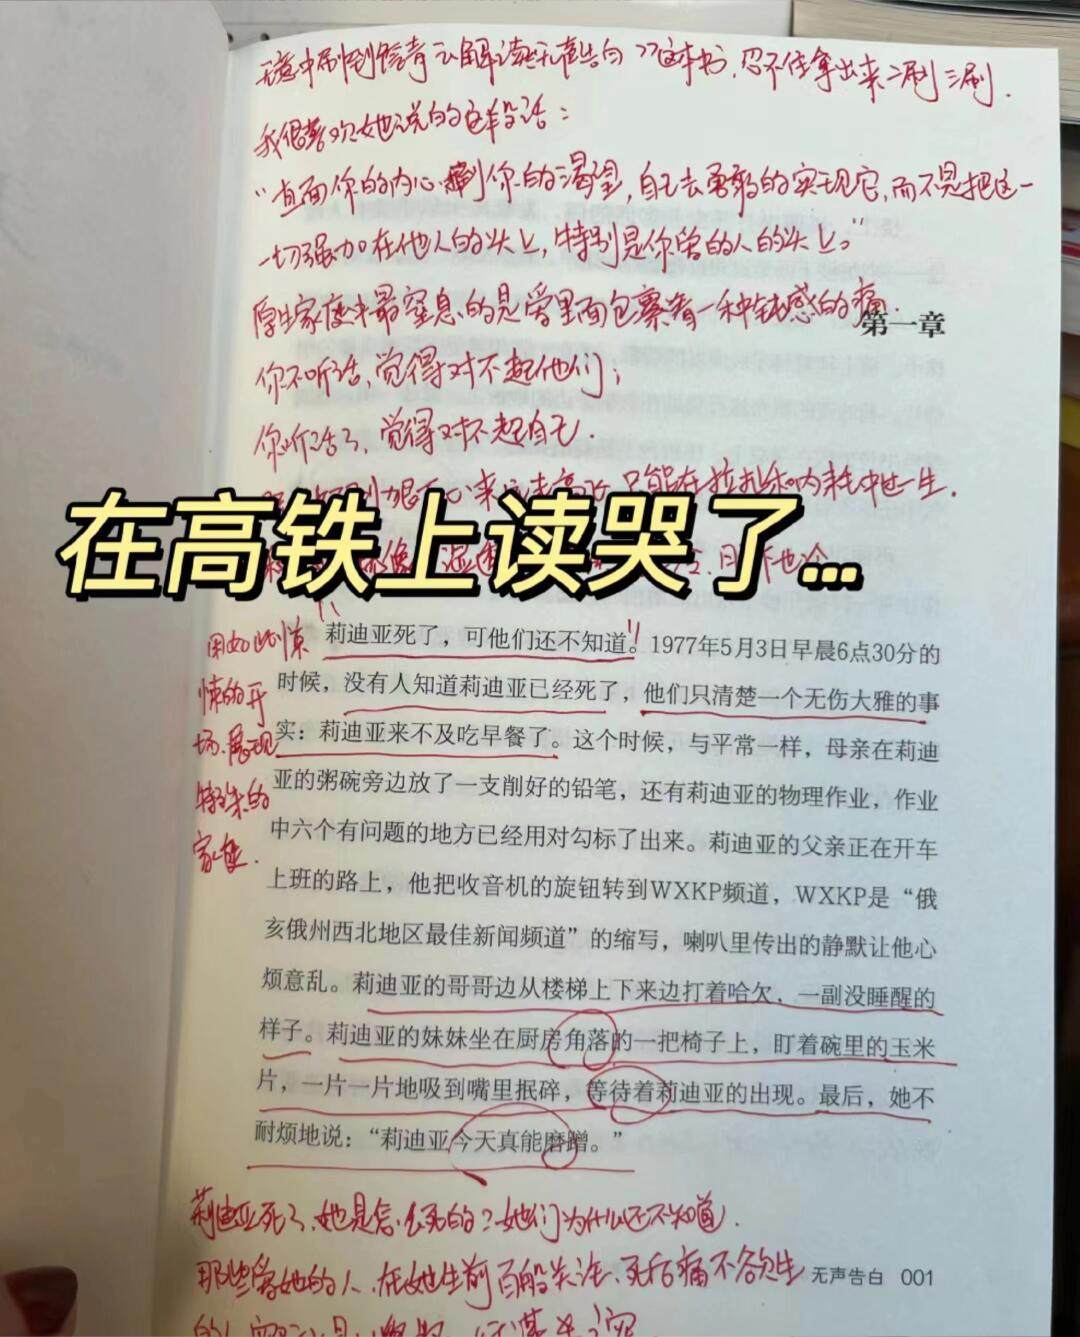 无意中刷到 解读无声告白 这本书,忍不住拿出来二刷三刷.
我很喜欢她说的这段话:
"直面你的内心 到你的渴望,自己去勇敢的实现它,而不是把这一
一切强加在他人的头上,特别是你爱的人的头上。"
原生家庭中最窒息的是爱里面包裹着一种钝感的痛.
第一章
你不听话,觉得对不起他们;
你听话了,觉得对不起自己.
只能在拉扯和内耗中过一生.
在高铁上读哭了...
莉迪亚死了,可他们还不知道。1977年5月3日早晨6点30分的
时候,没有人知道莉迪亚已经死了,他们只清楚一个无伤大雅的事
实:莉迪亚来不及吃早餐了。这个时候,与平常一样,母亲在莉迪
亚的粥碗旁边放了一支削好的铅笔,还有莉迪亚的物理作业,作业
中六个有问题的地方已经用对勾标了出来。莉迪亚的父亲正在开车
上班的路上,他把收音机的旋钮转到WXKP频道,WXKP是“俄
亥俄州西北地区最佳新闻频道”的缩写,喇叭里传出的静默让他心
烦意乱。莉迪亚的哥哥边从楼梯上下来边打着哈欠,一副没睡醒的
样子。莉迪亚的妹妹坐在厨房角落的一把椅子上,盯着碗里的玉米
片,一片一片地吸到嘴里抿碎,等待着莉迪亚的出现。最后,她不
耐烦地说:“莉迪亚今天真能磨蹭。”
用如此惊
悚的开
场,展现
特殊的
家庭.
莉迪亚死了,她是怎么死的?她们为什么还不知道.
那些爱她的人,在她生前百般关注,死后痛不欲生
无声告白 001